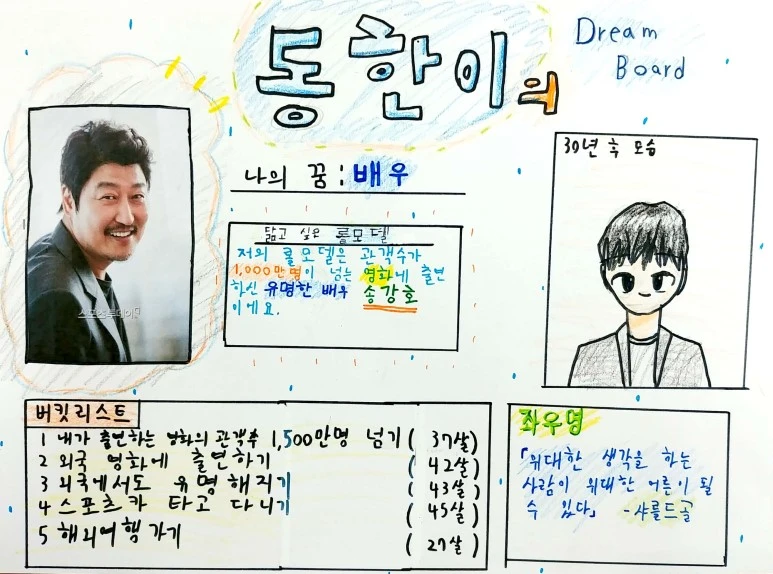 동한이의
Dream
Board
나의 꿈 : 배우
30년 후 모습
닮고 싶은 롤모델
저의 롤모델은 관객수가
1,000만명이 넘는 영화에 출연
하신 유명한 배우 송강호
이에요.
스포츠투데이
버킷리스트
1 내가 출연하는 영화의 관객수 1,500만명 넘기 ( 37살)
2 외국 영화에 출연하기 ( 42살)
3 외국에서도 유명해지기 ( 43살)
4 스포츠카 타고 다니기 ( 45살)
5 해외여행가기 ( 27살)
좌우명
「위대한 생각을 하는
사람이 위대한 어른이 될
수 있다」 -샤를드골